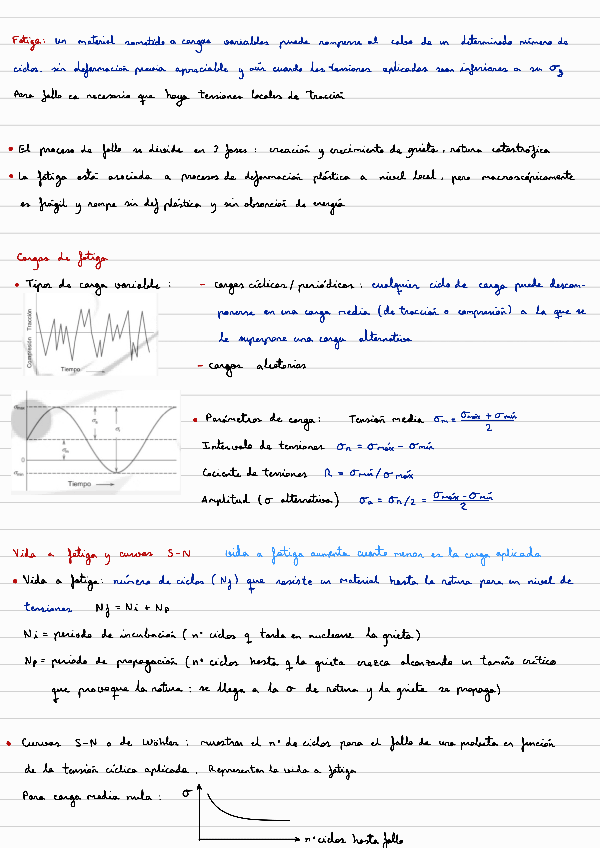 Fatiga: un material sometido a cargas variables puede romperse al cabo de un determinado número de
ciclos, sin deformación previa apreciable y aún cuando las tensiones aplicadas sean inferiores a su σy
Para fallo es necesario que haya tensiones locales de tracción
• El proceso de fallo se divide en 3 fases: creación y crecimiento de grieta, rotura catastrófica
• La fatiga está asociada a procesos de deformación plástica a nivel local, pero macroscópicamente
es frágil y rompe sin def plástica y sin absorción de energía
Cargas de fatiga
• Tipos de carga variable:
- cargas cíclicas/periódicas: cualquier ciclo de carga puede descom-
ponerse en una carga media (de tracción o compresión) a la que se
le superpone una carga alternativa
- cargas aleatorias
Compresión Tracción
Tiempo
σmáx
σmín
σm
σa
σr
0
Tiempo
• Parámetros de carga: Tensión media σm = σmáx + σmín / 2
Intervalo de tensiones σr = σmáx - σmín
Cociente de tensiones R = σmín/σmáx
Amplitud (σ alternativa) σa = σr/2 = σmáx - σmín / 2
Vida a fatiga y curvas S-N vida a fatiga aumenta cuanto menor es la carga aplicada
• Vida a fatiga: número de ciclos (Nf) que resiste un material hasta la rotura para un nivel de
tensiones Nf = Ni + Np
Ni = periodo de incubación (nº ciclos q tarda en nuclearse la grieta)
Np = periodo de propagación (nº ciclos hasta q la grieta crezca alcanzando un tamaño crítico
que provoque la rotura: se llega a la σ de rotura y la grieta se propaga)
• Curvas S-N o de Wöhler: muestran el nº de ciclos para el fallo de una probeta en función
de la tensión cíclica aplicada. Representan la vida a fatiga
Para carga media nula:
σ
nº ciclos hasta fallo